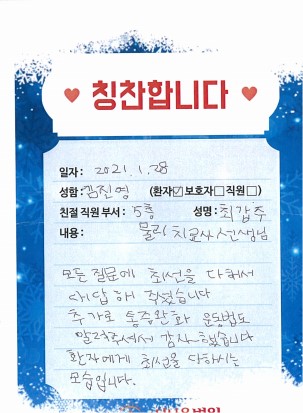 칭찬합니다
일자: 2021. 1. 28
성함: 김진영 (환자☑ 보호자☐ 직원☐)
친절 직원 부서: 5층 성명: 최갑주
내용: 물리치료사 선생님
모든 질문에 최선을 다해서
대답해 주셨습니다
추가로 통증완화 운동법도
알려주셔서 감사했습니다
환자에게 최선을 다하시는
모습입니다.